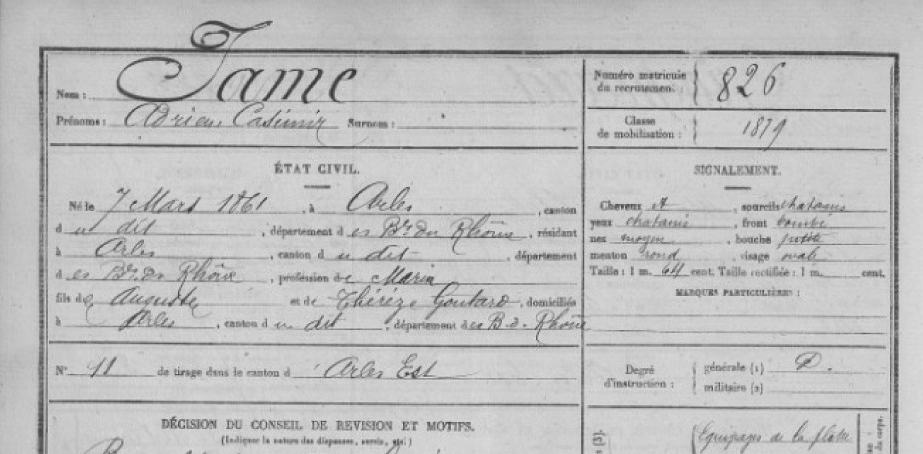 Nom : Jame
Prénoms : Adrien Casimir Surnom :
Numéro matricule du recrutement : 826
Classe de mobilisation : 1879
ÉTAT CIVIL.
Né le 7 Mars 1861, à Arles, canton
d u dit, département d es B. du Rhône, résidant
à Arles, canton d u dit, département
d es B. du Rhône, profession de Marin
fils de Auguste et de Thérèze Goutard, domiciliés
à Arles, canton d u dit, département des B. d. Rhône
SIGNALEMENT.
Cheveux et, sourcils chatains
yeux chatains, front bombé
nez moyen, bouche petite
menton rond, visage ovale
Taille : 1 m. 64 cent. Taille rectifiée : 1 m. cent.
MARQUES PARTICULIÈRES :
N° 11 de tirage dans le canton d Arles Est
Degré d'instruction : générale (1) D.
militaire (2)
DÉCISION DU CONSEIL DE REVISION ET MOTIFS.
(Indiquer la nature des dispenses, sursis, etc.)
(3).
Equipages de la flotte
du corps.